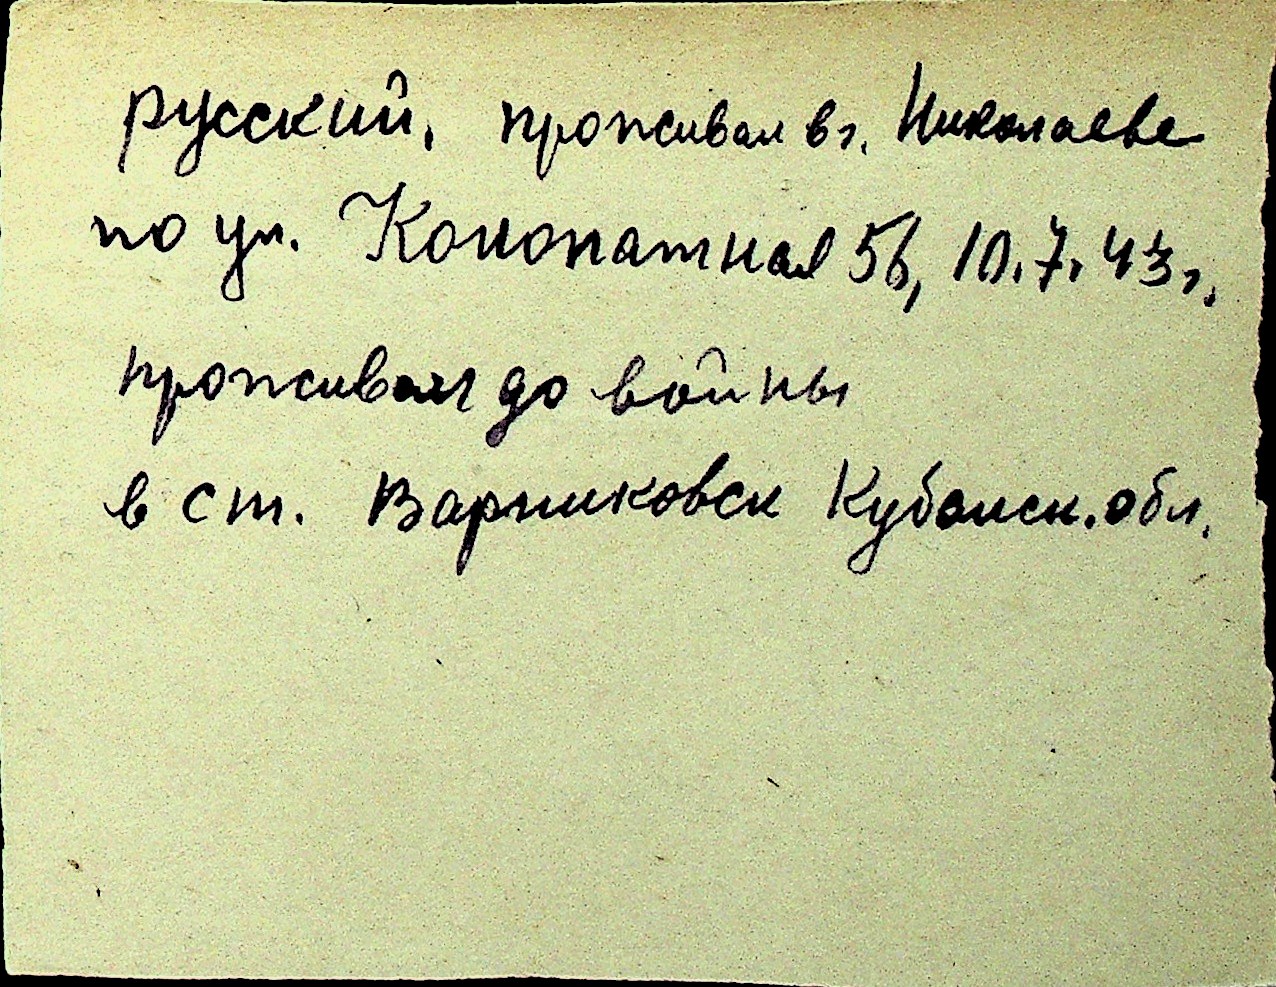 русский, проживал в г. Николаеве
по ул. Конопатная 56, 10.7.43 г.
проживал до войны
в ст. Варниковск Кубанск. обл.